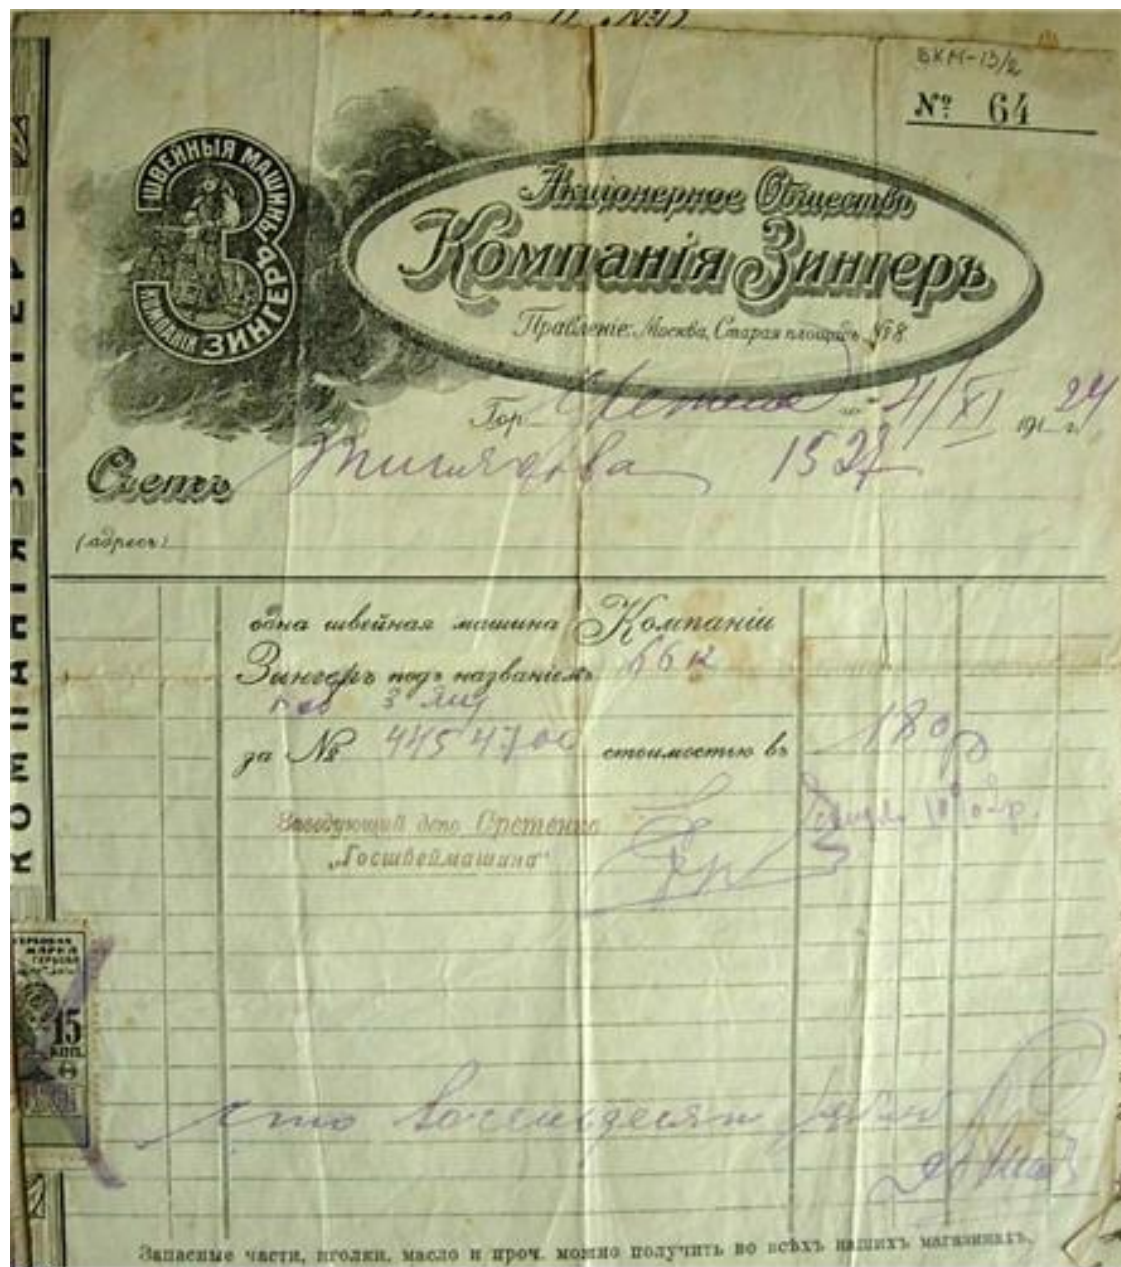 ВКМ-13/2
№ 64
ШВЕЙНЫЯ МАШИНЫ
КОМПАНІИ ЗИНГЕРЪ
Акціонерное Общество
Компанія Зингеръ
Правленіе: Москва, Старая площадь №8.
Гор. Сретенск 4/XI 191 24 г.
Счетъ 1527
(адресъ)
КОМПАНІЯ ЗИНГЕРЪ
одна швейная машина Компаніи
Зингеръ подъ названіемъ 66 к
3 ящ
за № 44547 стоимостью въ 180 р
Заведующий депо Сретенск
„Госшвеймашина“
ГЕРБОВАЯ
МАРКА
15
КОП.
сто восемьдесят рублей
Запасные части, иголки, масло и проч. можно получить во всѣхъ нашихъ магазинахъ.